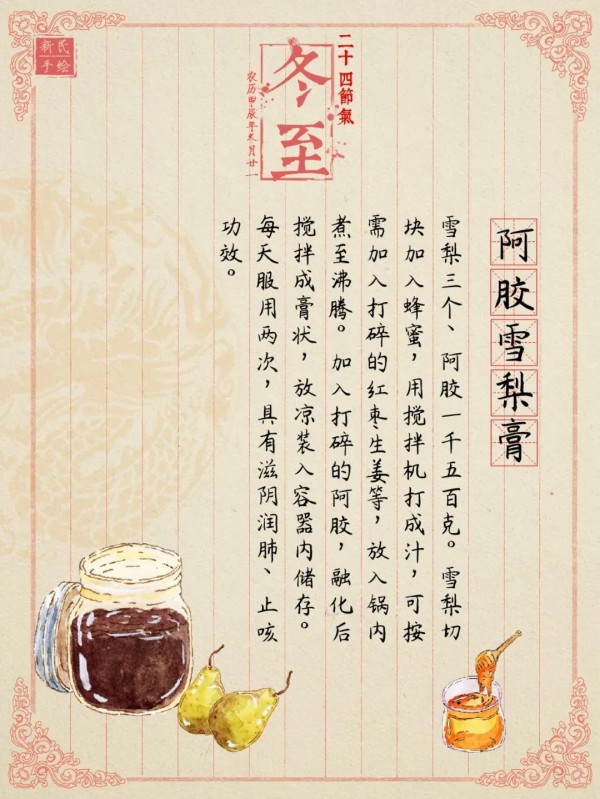 新民
手绘
二十四節氣
冬至
农历甲辰年冬月廿一
阿胶雪梨膏
雪梨三个、阿胶一千五百克。雪梨切
块加入蜂蜜，用搅拌机打成汁，可按
需加入打碎的红枣生姜等，放入锅内
煮至沸腾。加入打碎的阿胶，融化后
搅拌成膏状，放凉装入容器内储存。
每天服用两次，具有滋阴润肺、止咳
功效。